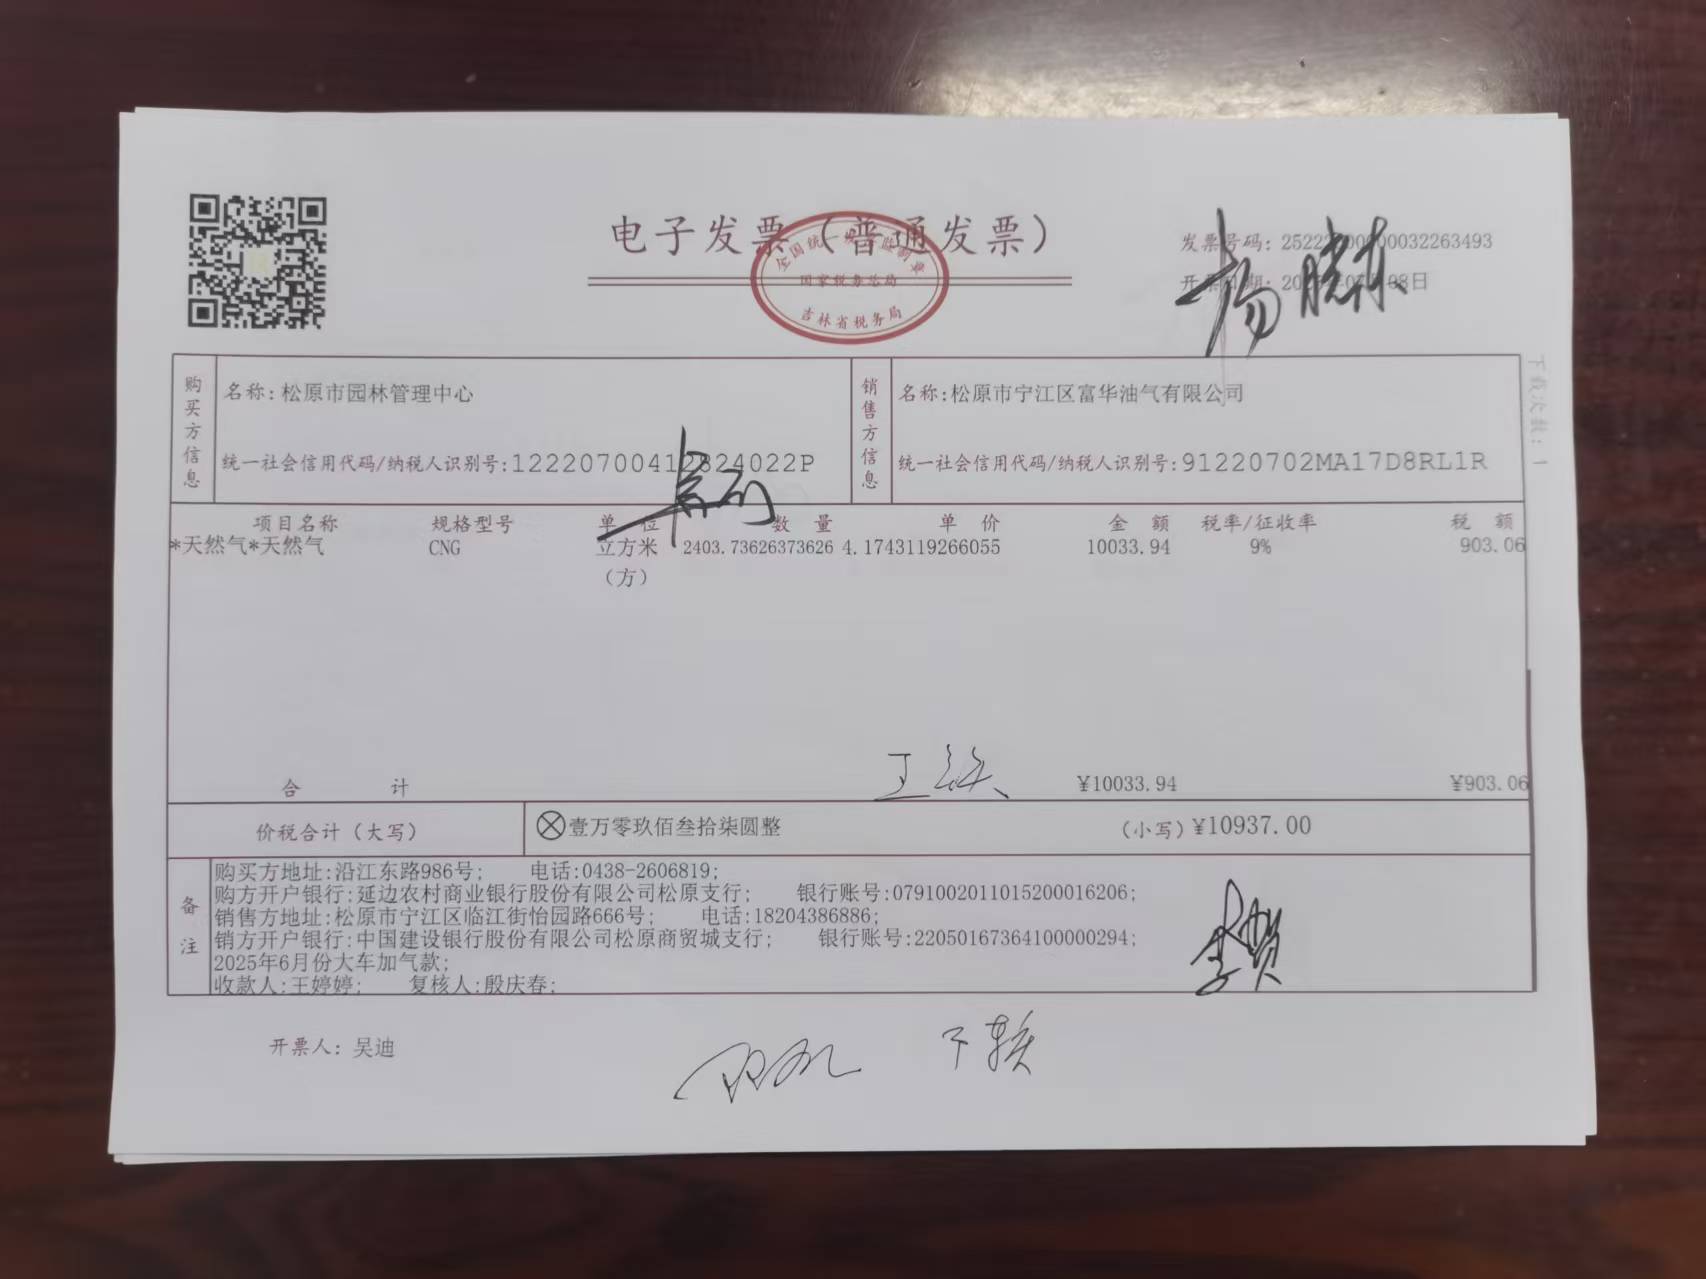 电子发票（普通发票）
全国统一发票监制章
国家税务总局
吉林省税务局
发票号码:
开票日期:
下载次数: 1
购买方信息
名称: 松原市园林管理中心
统一社会信用代码/纳税人识别号:
销售方信息
名称: 松原市宁江区富华油气有限公司
统一社会信用代码/纳税人识别号: 91220702MA17D8RL1R
项目名称 规格型号 单位 数量 单价 金额 税率/征收率 税额
*天然气*天然气 CNG 立方米 2403.73626373626 4.1743119266055 10033.94 9% 903.06
（方）
合计 ¥10033.94 ¥903.06
价税合计（大写） ⊗壹万零玖佰叁拾柒圆整 （小写）¥10937.00
备注
购买方地址:沿江东路986号; 电话:0438-2606819;
购方开户银行:延边农村商业银行股份有限公司松原支行; 银行账号:0791002011015200016206;
销售方地址:松原市宁江区临江街怡园路666号; 电话:18204386886;
销方开户银行:中国建设银行股份有限公司松原商贸城支行; 银行账号:22050167364100000294;
2025年6月份大车加气款;
收款人:王婷婷; 复核人:殷庆春;
开票人: 吴迪